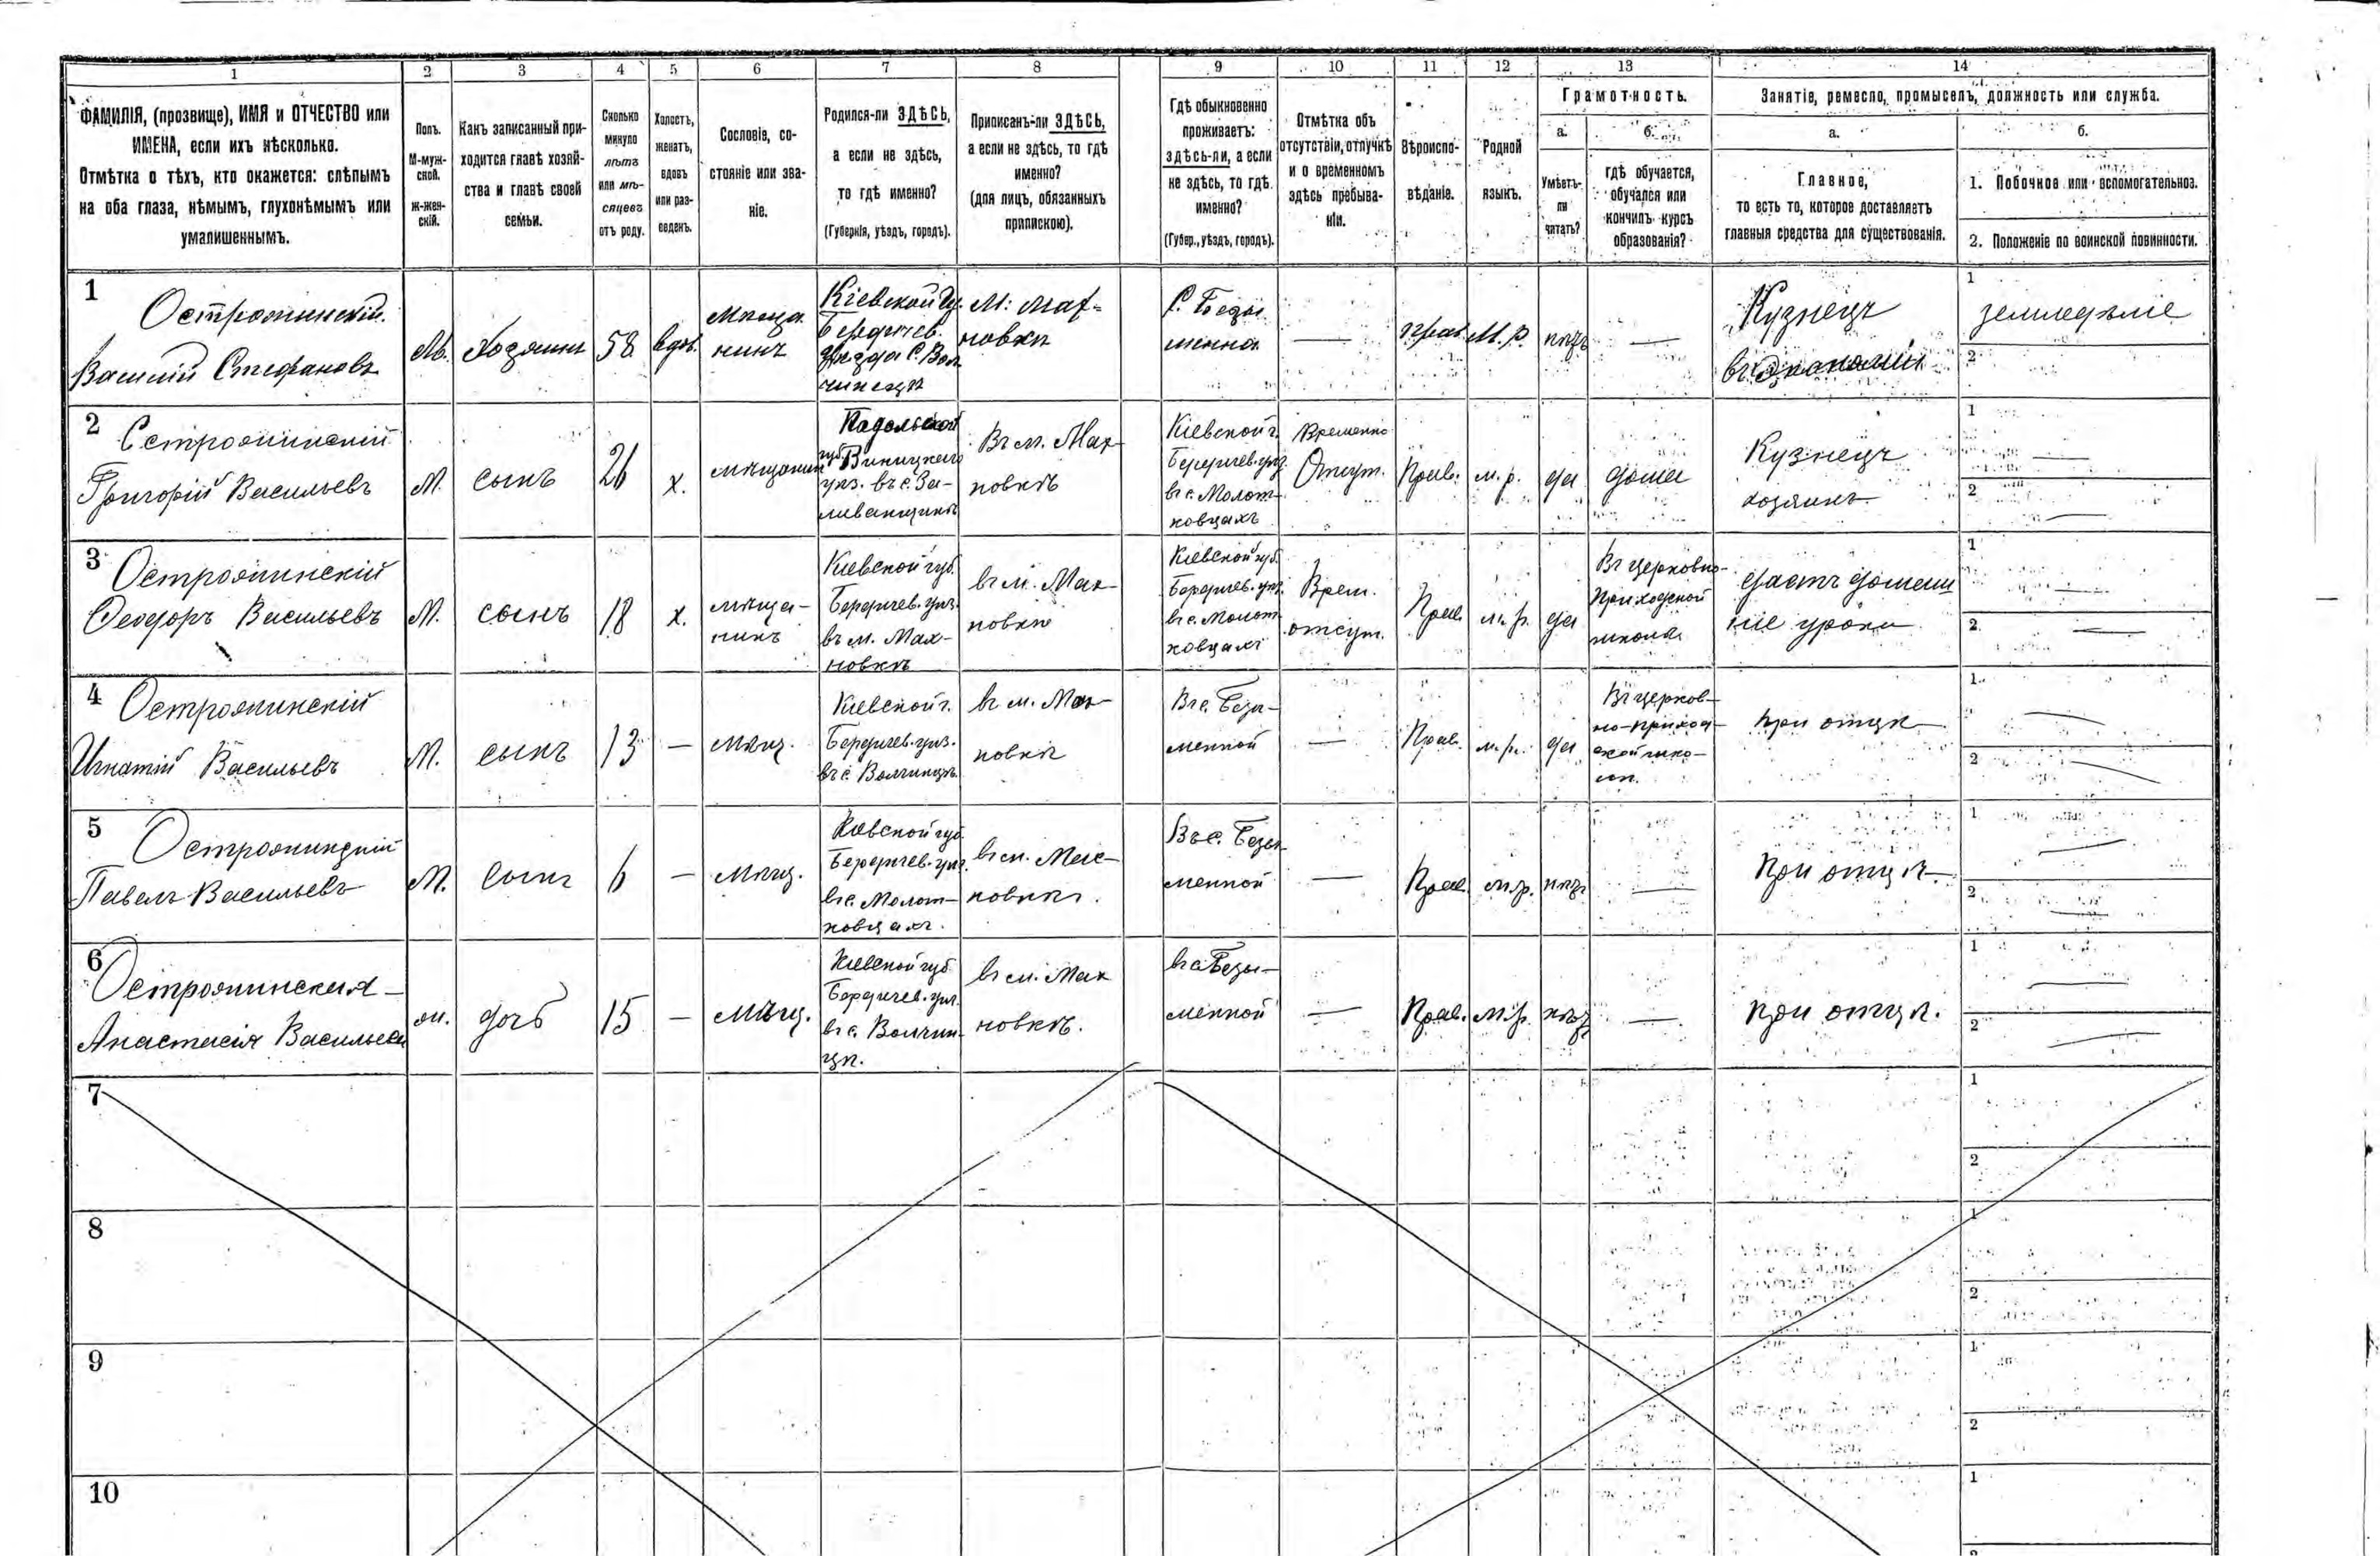 1 2 3 4 5 6 7 8 9 10 11 12 13 14
ФАМИЛІЯ, (прозвище), ИМЯ и ОТЧЕСТВО или
ИМЕНА, если ихъ нѣсколько.
Отмѣтка о тѣхъ, кто окажется: слѣпымъ
на оба глаза, нѣмымъ, глухонѣмымъ или
умалишеннымъ.
Полъ.
М-муж-
ской.
ж-жен-
скій.
Какъ записанный при-
ходится главѣ хозяй-
ства и главѣ своей
семьи.
Сколько
минуло
лѣтъ
или мѣ-
сяцевъ
отъ роду.
Холостъ,
женатъ,
вдовъ
или раз-
веденъ.
Сословіе, со-
стояніе или зва-
ніе.
Родился-ли ЗДѢСЬ,
а если не здѣсь,
то гдѣ именно?
(Губернія, уѣздъ, городъ).
Приписанъ-ли ЗДѢСЬ,
а если не здѣсь, то гдѣ
именно?
(для лицъ, обязанныхъ
припискою).
Гдѣ обыкновенно
проживаетъ:
здѣсь-ли, а если
не здѣсь, то гдѣ
именно?
(Губер., уѣздъ, городъ).
Отмѣтка объ
отсутствіи, отлучкѣ
и о временномъ
здѣсь пребыва-
ніи.
Вѣроиспо-
вѣданіе.
Родной
языкъ.
Грамотность.
а.
Умѣетъ-
ли
читать?
б.
гдѣ обучается,
обучался или
кончилъ курсъ
образованія?
Занятіе, ремесло, промыселъ, должность или служба.
а.
Главное,
то есть то, которое доставляетъ
главныя средства для существованія.
б.
1. Побочное или вспомогательное.
2. Положеніе по воинской повинности.
1
Василій Стефановъ
М.
Хозяинъ
58
вдов.
мѣща
нинъ
Кіевской Гу.
Бердичев.
уѣзда С. Вол
чинецъ
М: Мах=
новки
С. Безы
менна
Прав
М. Р.
нѣтъ
—
Кузнецъ
въ Экономіи
1
земледѣліе
2
2
Григорій Васильевъ
М.
сынъ
26
х.
мѣщанин
Подольской
губ. Виницкаго
уѣз. въ с. За-
ливанщинѣ
Въ м. Мах-
новкѣ
Кіевской г.
Бердичев. уѣз
въ с. Молот-
ковцахъ
Временно
Отсут.
Прав.
м. р.
да
дома
Кузнецъ
хозяинъ
1 —
2 —
3
Остроминскій
Ѳеодоръ Васильевъ
М.
сынъ
18
х.
мѣща-
нинъ
Кіевской губ.
Бердичев. уѣз.
въ м. Мах-
новкѣ
въ м. Мах-
новкѣ
Кіевской губ.
Бердичев. уѣз.
въ с. Молот
ковцахъ
Врем.
отсут.
Прав.
м. р.
да
Въ церковно-
приходской
школѣ
даетъ домаш
ніе уроки
1 —
2 —
4
Остроминскій
Игнатій Васильевъ
М.
сынъ
13
—
мѣщ.
Кіевской г.
Бердичев. уѣз.
въ с. Волчинцѣ
въ м. Мах-
новкѣ
Въ с. Безы-
менной
—
Прав.
м. р.
да
Въ церков-
но-приход-
ской шко-
лѣ.
при отцѣ
1 —
2 —
5
Павелъ Васильевъ
М.
сынъ
6
—
мѣщ.
Кіевской губ.
Бердичев. уѣз.
въ с. Молот-
ковцахъ.
въ м. Мах-
новкѣ.
Въ с. Безы
менной
—
Прав.
м. р.
нѣтъ
—
при отцѣ
1 —
2 —
6
Остроминская
Анастасія Васильева
ж.
дочь
15
—
мѣщ.
Кіевской губ
Бердичев. уѣз.
въ с. Волчин-
цѣ.
въ м. Мах
новкѣ.
въ с. Безы-
менной
—
Прав.
м. р.
нѣтъ
—
при отцѣ.
1 —
2 —
7
1
2
8
1
2
9
1
2
10
1
2